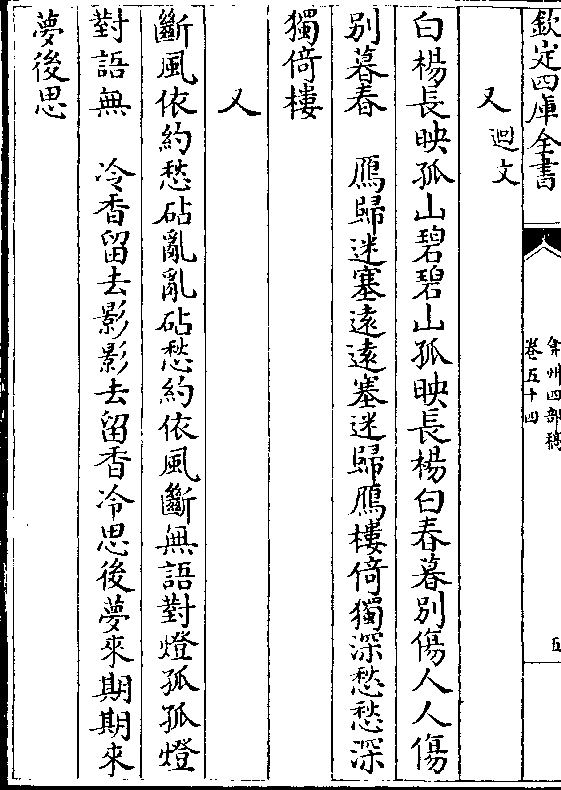 欽定四庫全書
弇州四部稿
卷五十四
五
又迴文
白楊長映孤山碧碧山孤映長楊白春暮別傷人人傷
別暮春　鴈歸迷塞遠遠塞迷歸鴈樓倚獨深愁愁深
獨倚樓
又
斷風依約愁砧亂亂砧愁約依風斷無語對燈孤孤燈
對語無　冷香留去影影去留香冷思後夢來期期來
夢後思